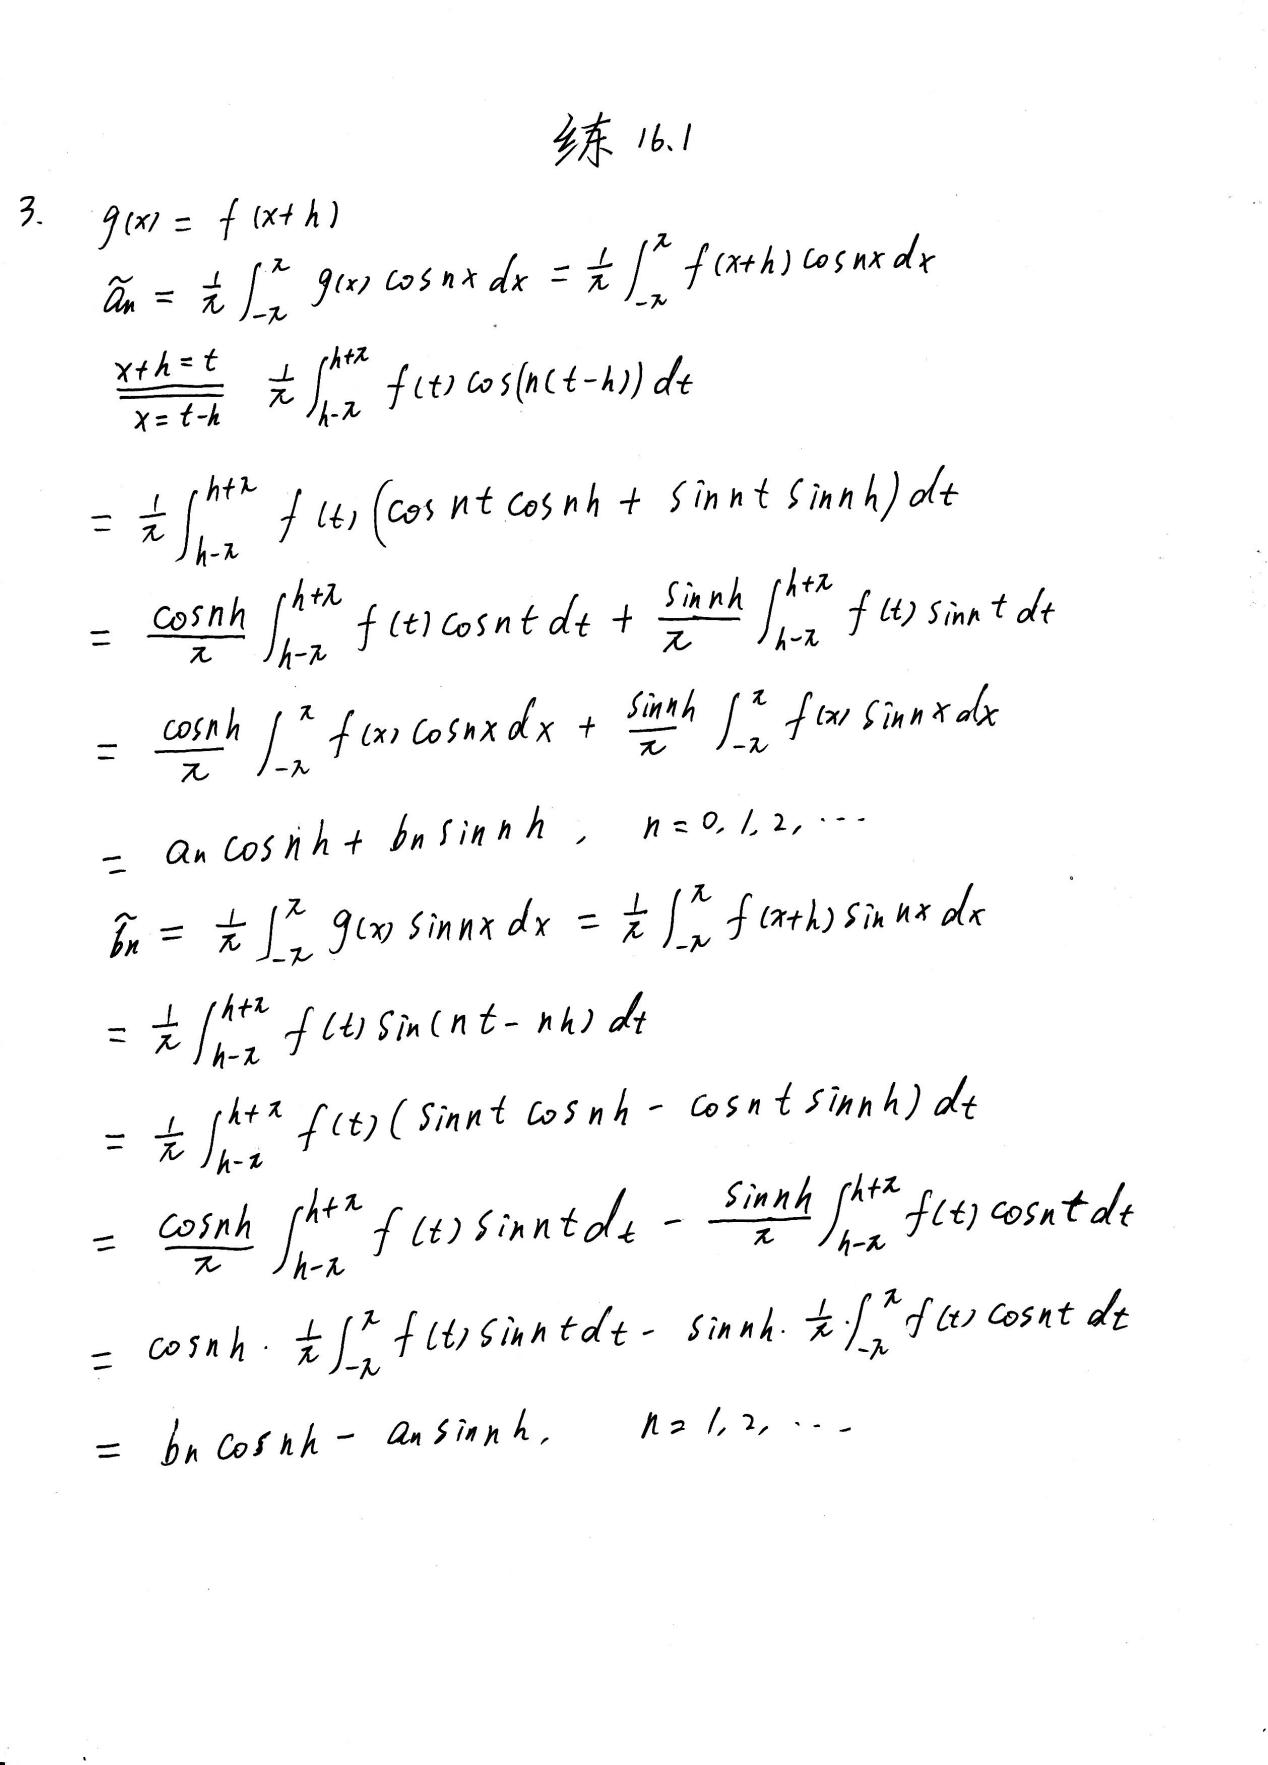 练 16.1
3. g(x) = f(x+h)
ãn = 1/π ∫_{-π}^{π} g(x) cosnx dx = 1/π ∫_{-π}^{π} f(x+h) cosnx dx
x+h=t
x=t-h 1/π ∫_{h-π}^{h+π} f(t) cos(n(t-h)) dt
= 1/π ∫_{h-π}^{h+π} f(t) (cosnt cosnh + sinnt sinnh) dt
= cosnh/π ∫_{h-π}^{h+π} f(t) cosnt dt + sinnh/π ∫_{h-π}^{h+π} f(t) sinnt dt
= cosnh/π ∫_{-π}^{π} f(x) cosnx dx + sinnh/π ∫_{-π}^{π} f(x) sinnx dx
= an cosnh + bn sinnh, n=0,1,2,...
b̃n = 1/π ∫_{-π}^{π} g(x) sinnx dx = 1/π ∫_{-π}^{π} f(x+h) sinnx dx
= 1/π ∫_{h-π}^{h+π} f(t) sin(nt-nh) dt
= 1/π ∫_{h-π}^{h+π} f(t) (sinnt cosnh - cosnt sinnh) dt
= cosnh/π ∫_{h-π}^{h+π} f(t) sinnt dt - sinnh/π ∫_{h-π}^{h+π} f(t) cosnt dt
= cosnh · 1/π ∫_{-π}^{π} f(t) sinnt dt - sinnh · 1/π · ∫_{-π}^{π} f(t) cosnt dt
= bn cosnh - an sinnh, n=1,2,...